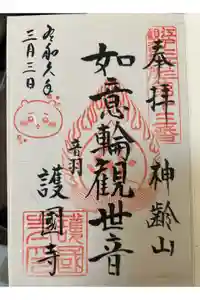 奉拝
神齢山
如意輪観世音
音羽
護國寺
令和六年
三月三日